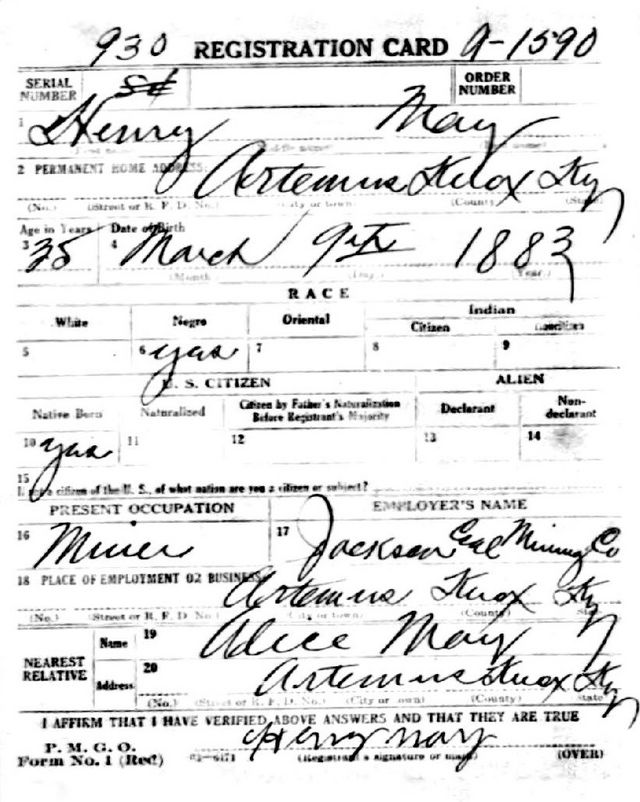 930 REGISTRATION CARD A-1590
SERIAL NUMBER ORDER NUMBER
1 Henry May
2 PERMANENT HOME ADDRESS:
Artemus Knox Ky
(No.) (Street or R. F. D. No.) (City or town) (County) (State)
Age in Years Date of Birth
3 35 4 March 9th 1883
(Month) (Day) (Year)
RACE
White Negro Oriental Indian
Citizen Noncitizen
5 6 yas 7 8 9
U. S. CITIZEN ALIEN
Native Born Naturalized Citizen by Father's Naturalization Before Registrant's Majority Declarant Non-declarant
10 yas 11 12 13 14
15
If not a citizen of the U. S., of what nation are you a citizen or subject?
PRESENT OCCUPATION EMPLOYER'S NAME
16 Miner 17 Jackson Coal Mining Co
18 PLACE OF EMPLOYMENT OR BUSINESS:
Artemus Knox Ky
(No.) (Street or R. F. D. No.) (City or town) (County) (State)
NEAREST RELATIVE
Name 19 Alice May
Address 20 Artemus Knox Ky
(No.) (Street or R. F. D. No.) (City or town) (County) (State)
I AFFIRM THAT I HAVE VERIFIED ABOVE ANSWERS AND THAT THEY ARE TRUE
P. M. G. O.
Form No. 1 (Red) Henry May
(Registrant's signature or mark) (OVER)